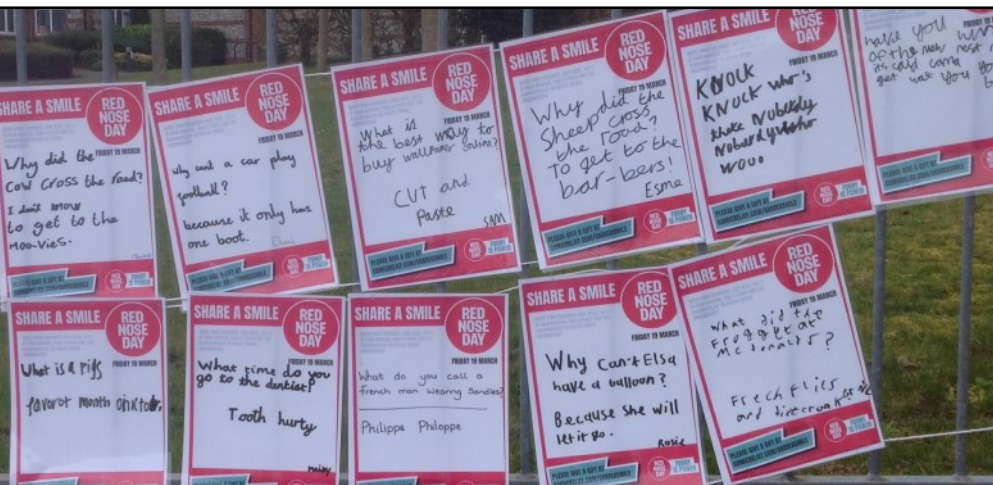 SHARE A SMILE
RED
NOSE
DAY
FRIDAY 19 MARCH
Why did the
cow cross the road?
I don't know
to get to the
Moo-vies.
SHARE A SMILE
RED
NOSE
DAY
FRIDAY 19 MARCH
Why cant a car play
football?
because it only has
one boot.
PLEASE GIVE A GIFT AT
SHARE A SMILE
RED
NOSE
DAY
FRIDAY 19 MARCH
What is
the best way to
buy wallpaper online?
CUT and
Paste
SAM
PLEASE GIVE A GIFT AT
COMICRELIEF.COM/SHAREASMILE
SHARE A SMILE
RED
NOSE
DAY
FRIDAY 19 MARCH
Why did the
Sheep cross
the road?
To get to the
bar-bers!
Esme
PLEASE GIVE A GIFT AT
COMICRELIEF.COM/SHAREASMILE
SHARE A SMILE
RED
NOSE
DAY
FRIDAY 19 MARCH
KNOCK
KNOCK who's
there Nuberdy
Noberdy who
PLEASE GIVE A GIFT AT
COMICRELIEF.COM/SHAREASMILE
have you
of the new rest
its calld
get wat you
PLEASE GIVE A GIFT AT
SHARE A SMILE
RED
NOSE
DAY
FRIDAY 19 MARCH
What is a pigs
favorot month
SHARE A SMILE
RED
NOSE
DAY
FRIDAY 19 MARCH
What time do you
go to the dentist?
Tooth hurty
Maisy
SHARE A SMILE
RED
NOSE
DAY
FRIDAY 19 MARCH
What do you call a
french man wearing Sandles?
Philippe Philoppe
SHARE A SMILE
RED
NOSE
DAY
FRIDAY 19 MARCH
Why can't Elsa
have a balloon?
Because she will
let it go.
Rosie
PLEASE GIVE A GIFT AT
COMICRELIEF.COM/SHAREASMILE
SHARE A SMILE
RED
NOSE
DAY
FRIDAY 19 MARCH
What did the
Frogg eat at
McDonalds?
Frech flies
and
PLEASE GIVE A GIFT AT
COMICRELIEF.COM/SHAREASMILE